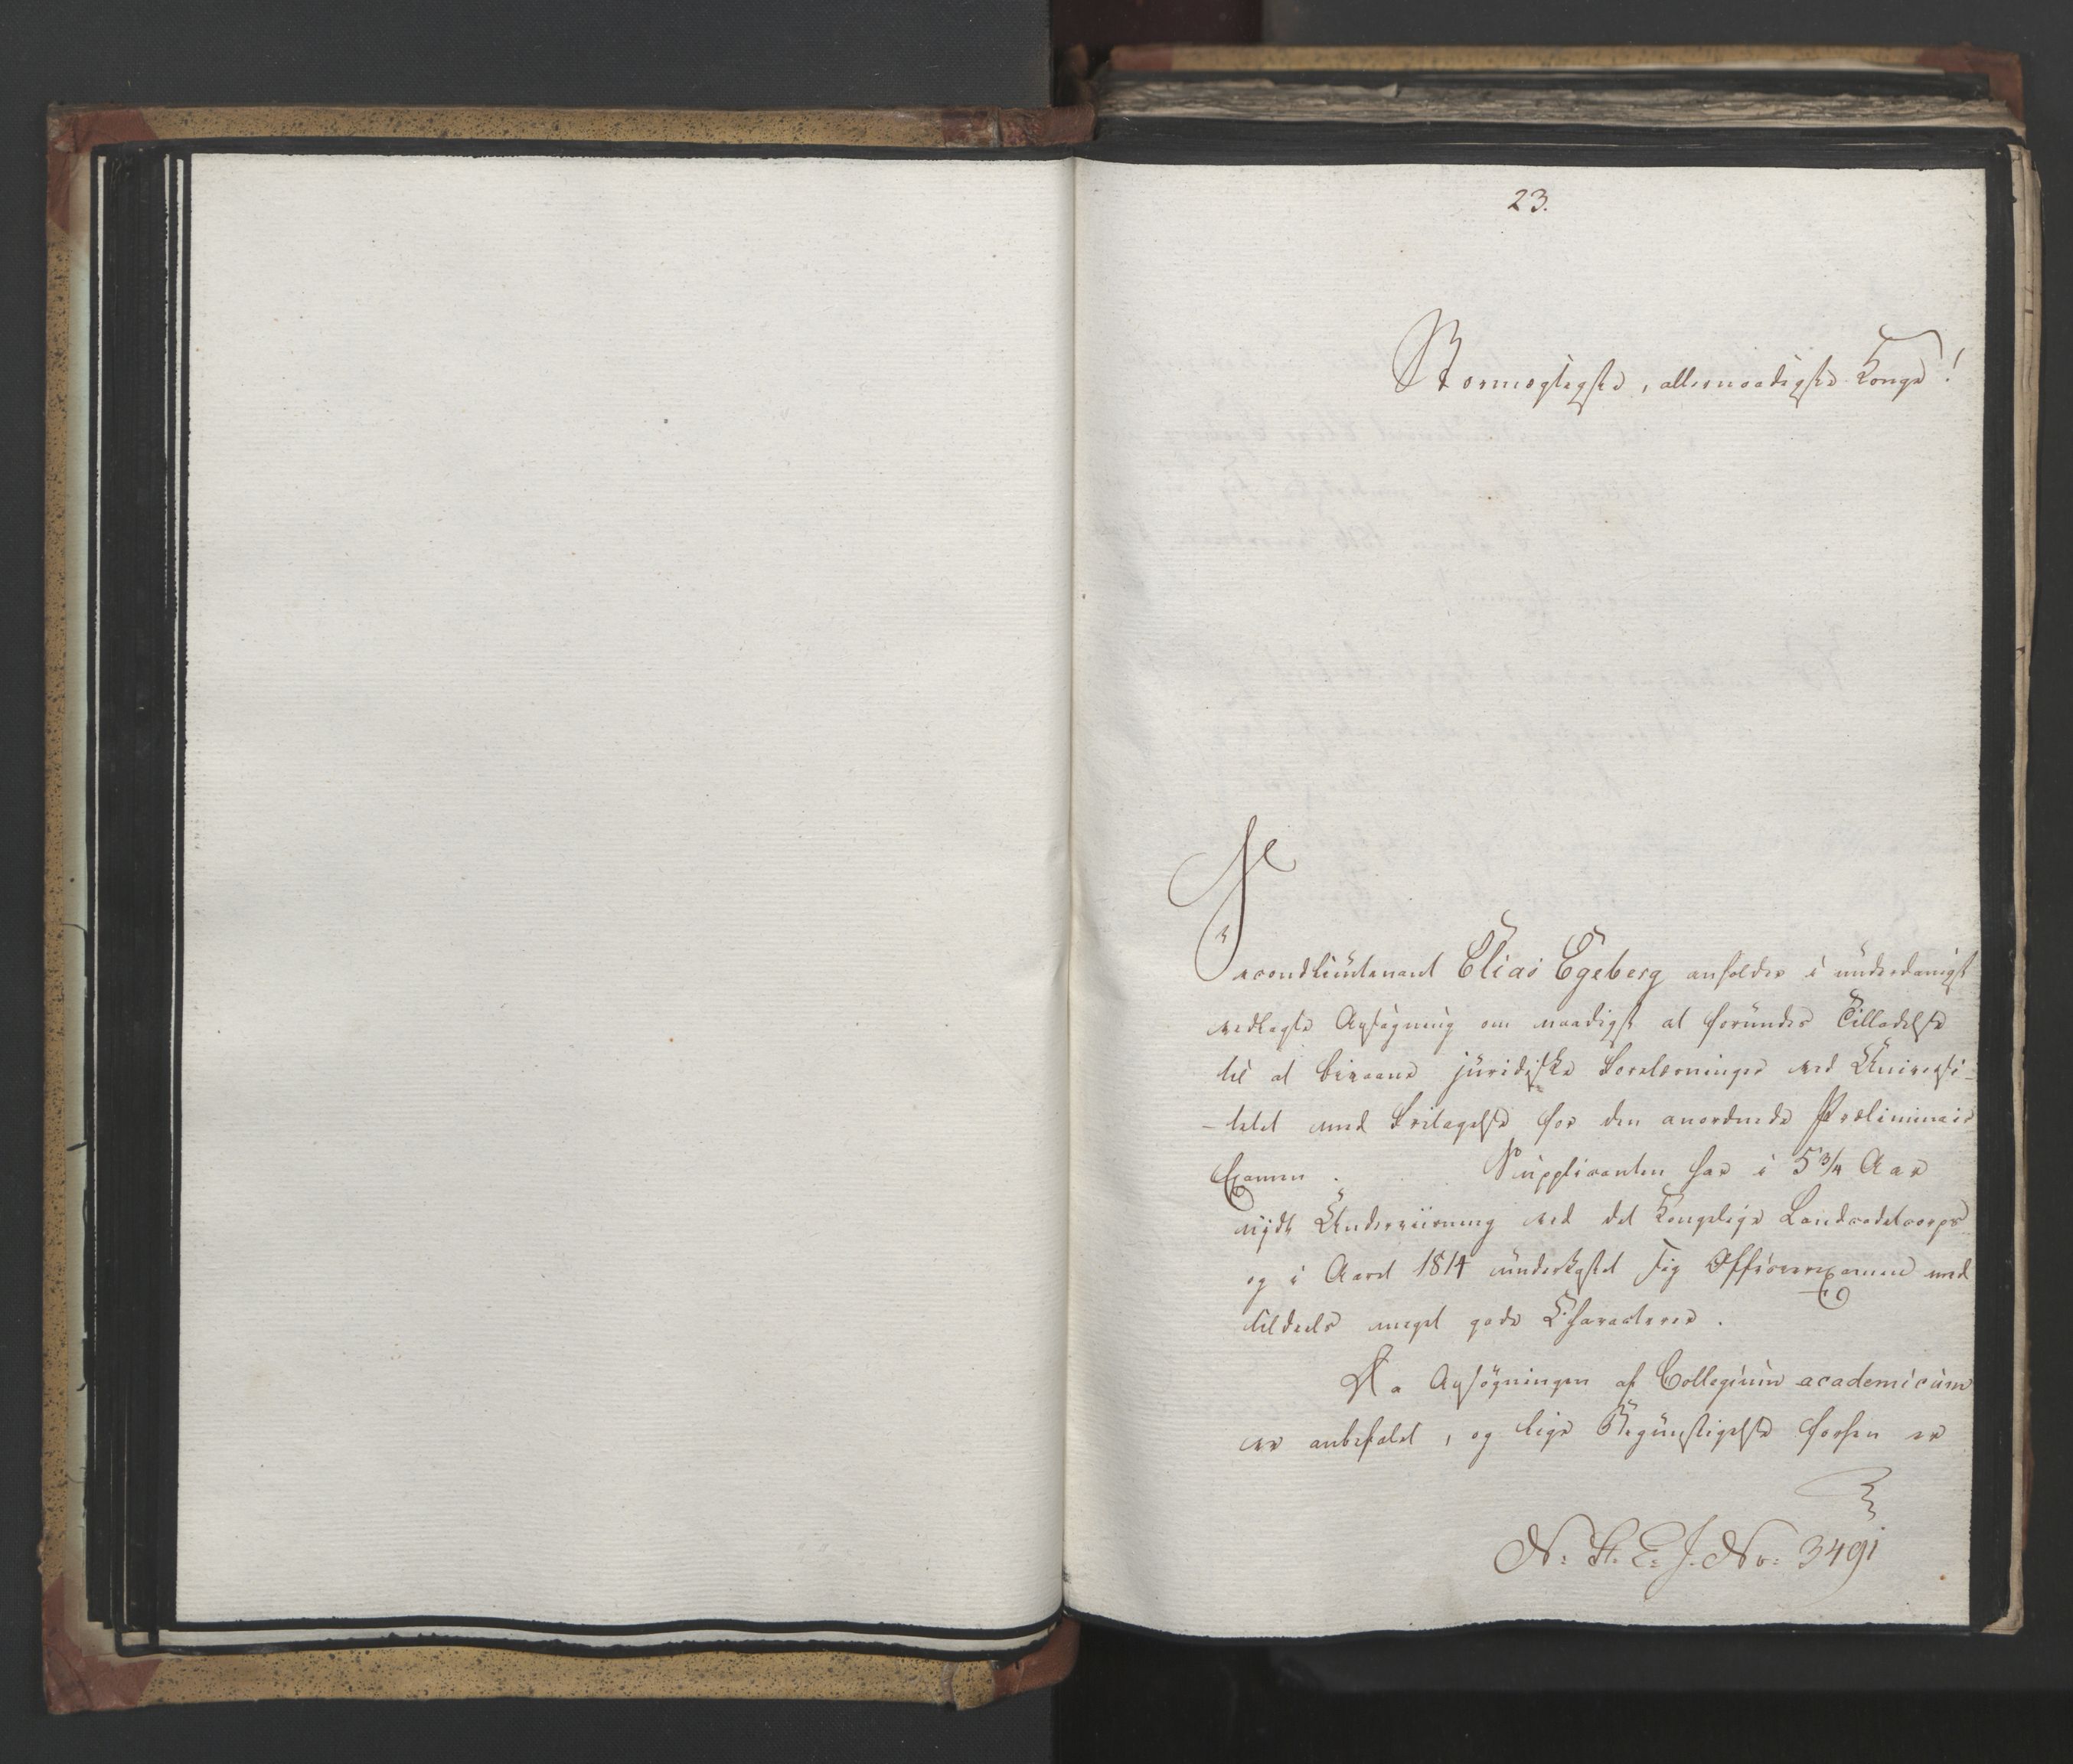 23.
Stormægtigste, allernaadigste Konge!
Secondlieutenant Elias Egeberg anholder i underdanigst
vedlagte Ansøgning om naadigst at forundes Tilladelse
til at bivaane juridiske Forelæsninger ved Universi-
-tetet med Fritagelse for den anordnede Præliminair
Examen. Supplicanten har i 5 3/4 Aar
nÿdt Underviisning ved det Kongelige Landcadetcorps
og i Aaret 1814 underkastet sig Officeerexamen med
tildeels meget gode Characterer.
Da Ansøgningen af Collegium academicum
er anbefalet, og lige Begunstigelse forhen er
N: St. E: J. No: 3491